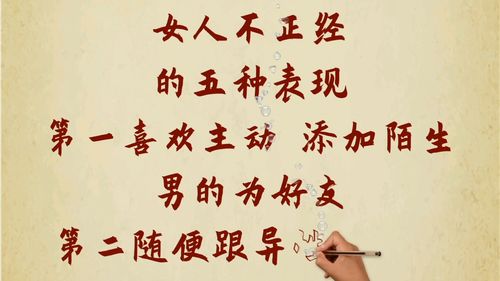 女人不正经
的五种表现
第一喜欢主动 添加陌生
男的为好友
第二随便跟异